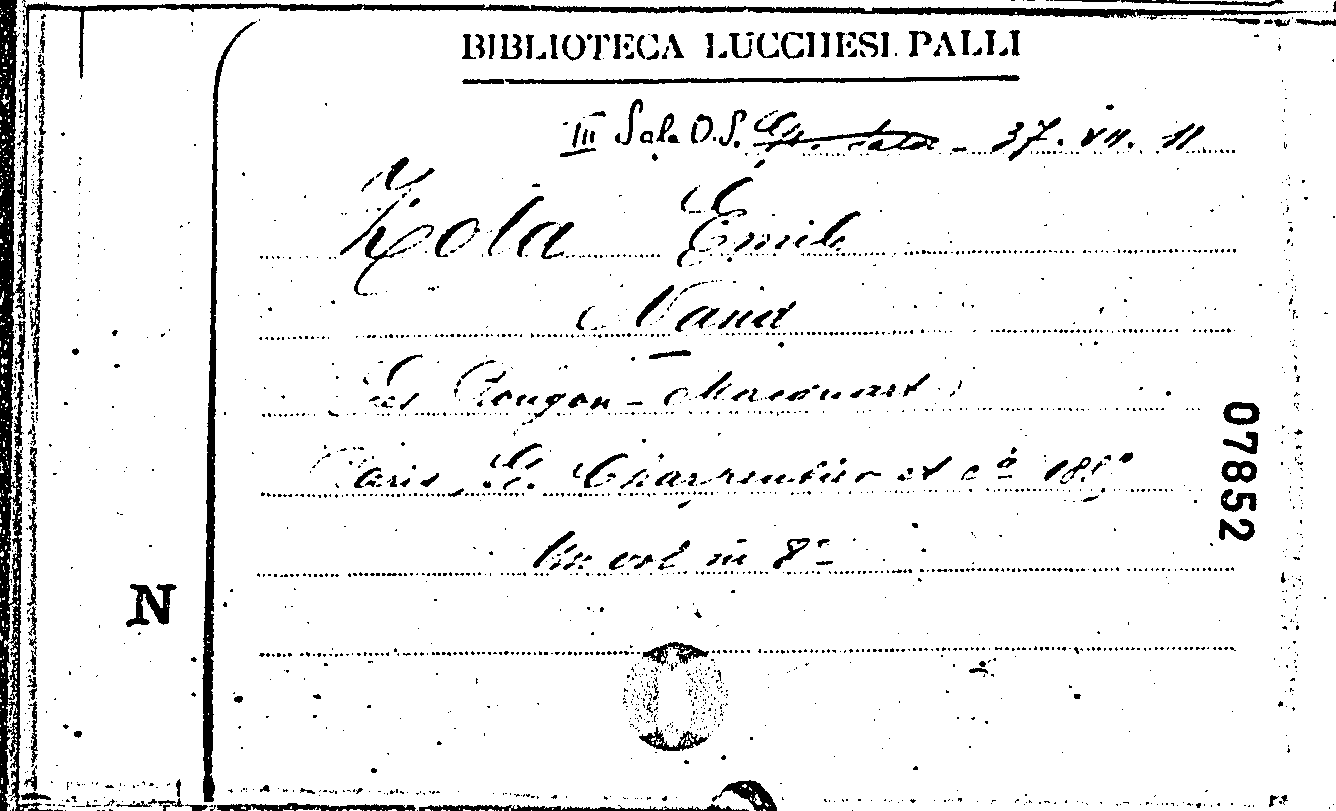 BIBLIOTECA LUCCHESI PALLI
III Sala O.S. Gr. Sala - 37. VII. 11
Zola Emile
Nana
Les Rougon-Macquart
Paris, G. Charpentier et Cª
Un vol in 8º
07852
N